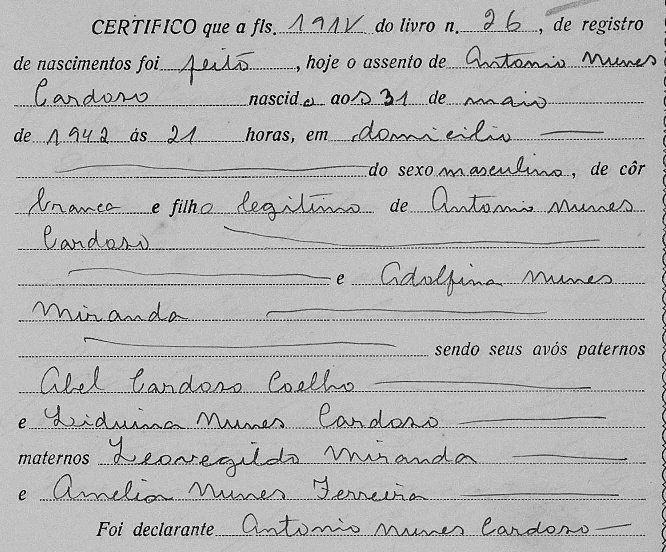 CERTIFICO que a fls. 191V do livro n. 26, de registro
de nascimentos foi feito, hoje o assento de Antonio Nunes
Cardoso nascido aos 31 de maio
de 1942 ás 21 horas, em domicilio
do sexo masculino, de côr
branca e filho legítimo de Antonio Nunes
Cardoso
e Adolfina Nunes
Miranda
sendo seus avós paternos
Abel Cardoso Coelho
e Liduina Nunes Cardoso
maternos Leovegildo Miranda
e Amelia Nunes Ferreira
Foi declarante Antonio Nunes Cardoso